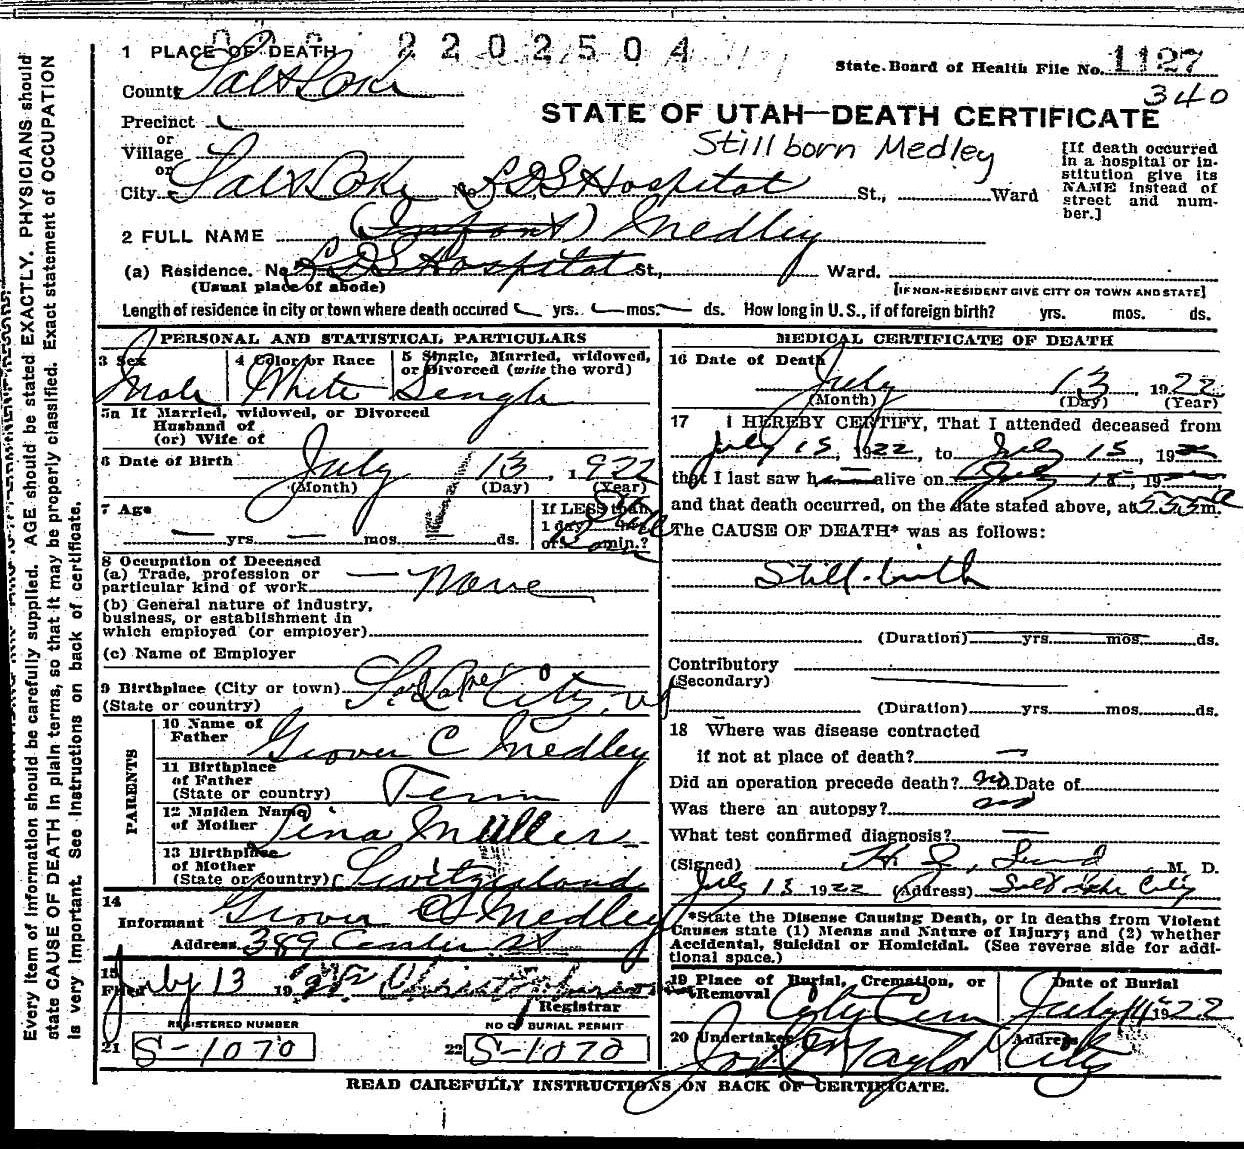 2202504
1 PLACE OF DEATH
State Board of Health File No. 1127
340
County Salt Lake
STATE OF UTAH—DEATH CERTIFICATE
Precinct
or
Village
or
Stillborn Medley
[If death occurred in a hospital or institution give its NAME instead of street and number.]
City Salt Lake No. LDS Hospital St., Ward
2 FULL NAME (Infant) Medley
(a) Residence. No. LDS Hospital St., Ward.
(Usual place of abode)
[IF NON-RESIDENT GIVE CITY OR TOWN AND STATE]
Length of residence in city or town where death occured yrs. mos. ds. How long in U. S., if of foreign birth? yrs. mos. ds.
PERSONAL AND STATISTICAL PARTICULARS
3 Sex
Male
4 Color or Race
White
5 Single, Married, widowed, or Divorced (write the word)
Single
5a If Married, widowed, or Divorced
Husband of
(or) Wife of
6 Date of Birth July 13, 1922
(Month) (Day) (Year)
7 Age yrs. mos. ds.
If LESS than
1 day hrs.
or min.?
8 Occupation of Deceased
(a) Trade, profession or
particular kind of work None
(b) General nature of industry,
business, or establishment in
which employed (or employer)
(c) Name of Employer
9 Birthplace (City or town) S. Lake City, Ut
(State or country)
PARENTS
10 Name of
Father Grover C Medley
11 Birthplace
of Father
(State or country) Tenn
12 Maiden Name
of Mother Lina Muller
13 Birthplace
of Mother
(State or country) Switzerland
14
Informant Grover C Medley
Address 389 St
15
Filed July 13 1922
Registrar
REGISTERED NUMBER
21 S-1070
NO OF BURIAL PERMIT
22 S-1070
MEDICAL CERTIFICATE OF DEATH
16 Date of Death
July 13, 1922
(Month) (Day) (Year)
17 I HEREBY CERTIFY, That I attended deceased from
July 13, 1922, to July 13, 19
that I last saw h alive on 19
and that death occurred, on the date stated above, at m.
The CAUSE OF DEATH* was as follows:
Still-birth
(Duration) yrs. mos. ds.
Contributory
(Secondary)
(Duration) yrs. mos. ds.
18 Where was disease contracted
if not at place of death?
Did an operation precede death? no Date of
Was there an autopsy? no
What test confirmed diagnosis?
(Signed) M. D.
July 13 1922 (Address) Salt Lake City
*State the Disease Causing Death, or in deaths from Violent
Causes state (1) Means and Nature of Injury; and (2) whether
Accidental, Suicidal or Homicidal. (See reverse side for addi-
tional space.)
19 Place of Burial, Cremation, or
Removal City Cem
Date of Burial
July 1922
20 Undertaker Taylor
Address City
READ CAREFULLY INSTRUCTIONS ON BACK OF CERTIFICATE.
Every item of information should be carefully supplied. AGE should be stated EXACTLY. PHYSICIANS should
state CAUSE OF DEATH in plain terms, so that it may be properly classified. Exact statement of OCCUPATION
is very important. See instructions on back of certificate.